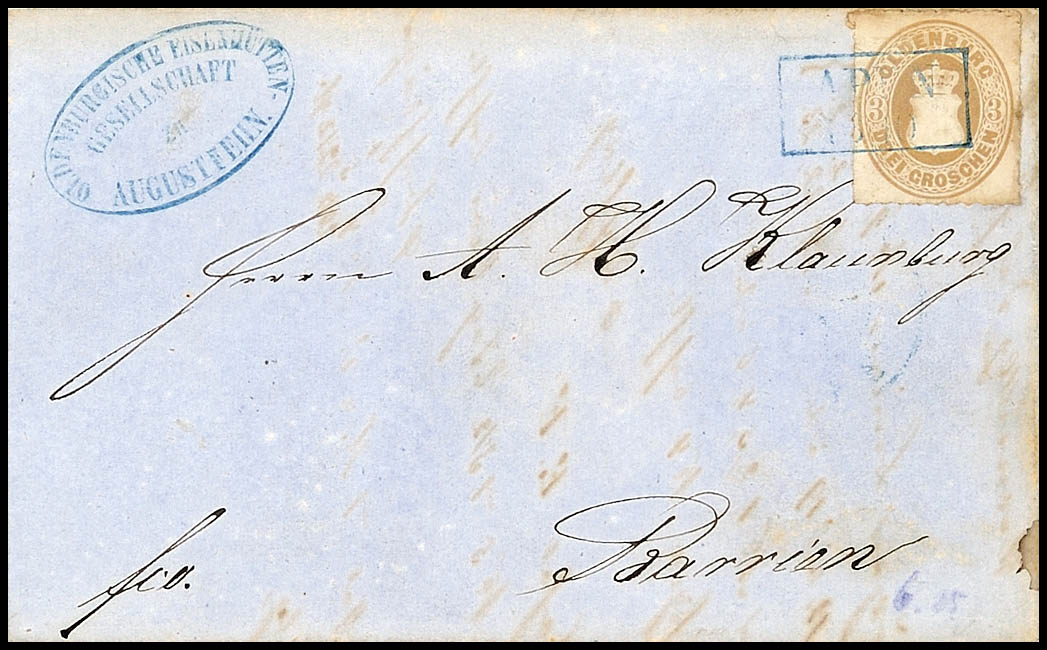 OLDENBURGISCHE EISENHÜTTEN-
GESELLSCHAFT
zu
AUGUSTFEHN.
OLDENBURG
3 3
DREI GROSCHEN
Herrn A. H. Klaunburg
fco.
Barrien
6.